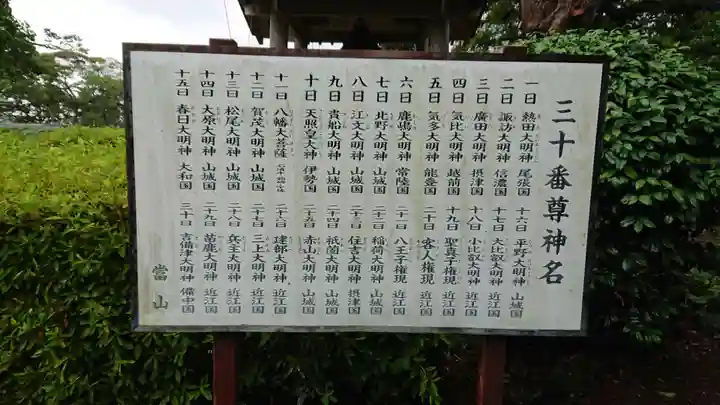 三十番尊神名
一日 熱田大明神 尾張国 十六日 平野大明神 山城国
二日 諏訪大明神 信濃国 十七日 大比叡大明神 近江国
三日 廣田大明神 摂津国 十八日 小比叡大明神 近江国
四日 気比大明神 越前国 十九日 聖真子権現 近江国
五日 気多大明神 能登国 二十日 客人権現 近江国
六日 鹿嶋大明神 常陸国 二十一日 八王子権現 近江国
七日 北野大明神 山城国 二十二日 稲荷大明神 山城国
八日 江文大明神 山城国 二十三日 住吉大明神 摂津国
九日 貴船大明神 山城国 二十四日 祇園大明神 山城国
十日 天照皇大神 伊勢国 二十五日 赤山大明神 山城国
十一日 八幡大菩薩 二十六日 建部大明神 近江国
十二日 賀茂大明神 山城国 二十七日 三上大明神 近江国
十三日 松尾大明神 山城国 二十八日 兵主大明神 近江国
十四日 大原大明神 山城国 二十九日 苗鹿大明神 近江国
十五日 春日大明神 大和国 三十日 吉備津大明神 備中国
當山